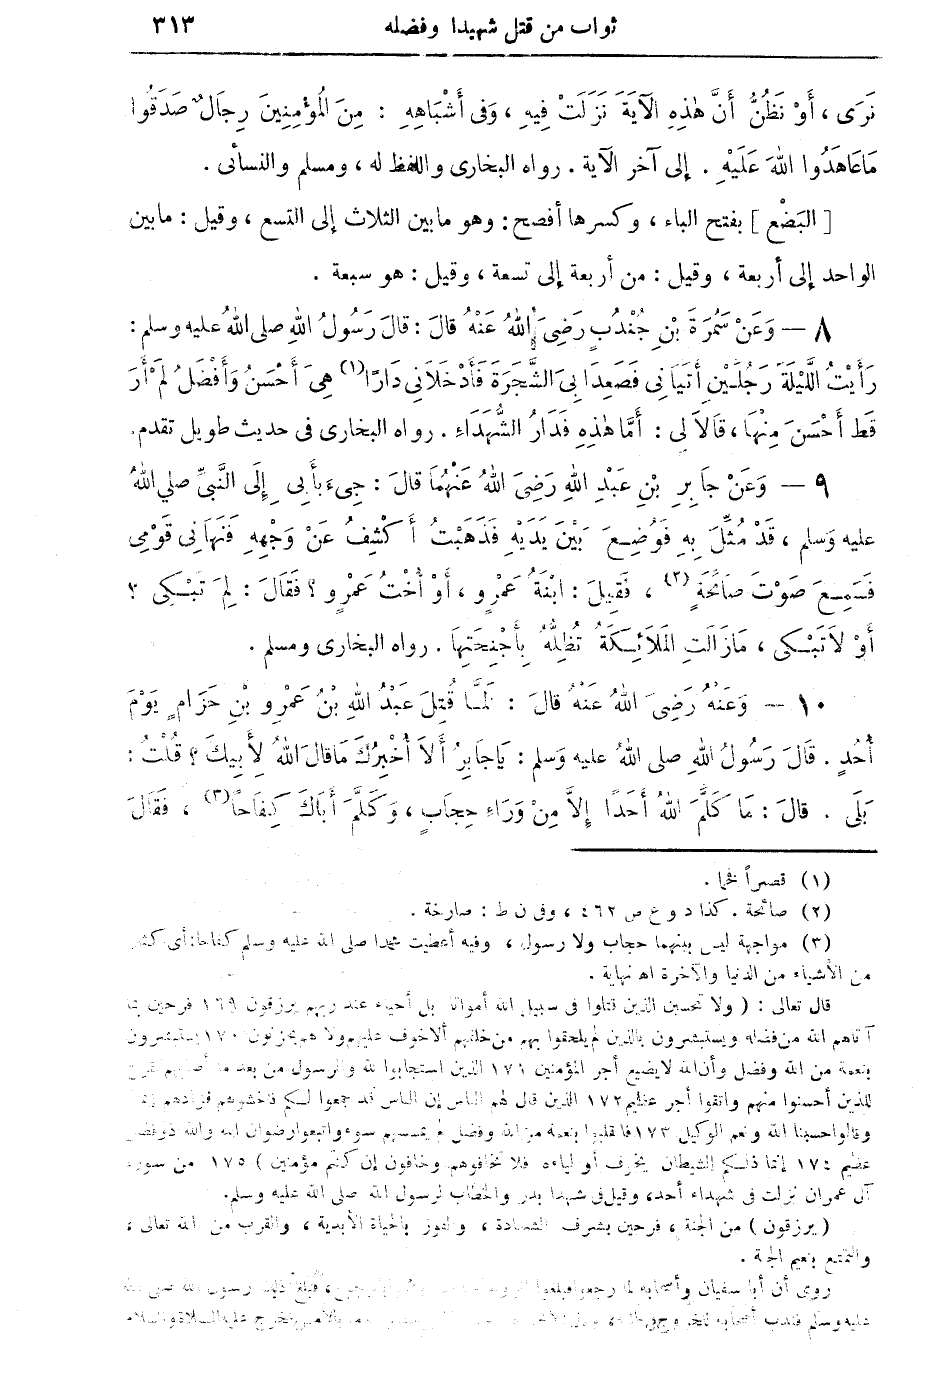 ثواب من قتل شهيدا وفضله ٣١٣
نَرَى ، أَوْ نَظُنُّ أَنَّ هٰذِهِ الآيَةَ نَزَلَتْ فِيهِ ، وَفِى أَشْبَاهِهِ : مِنَ الْمُؤْمِنِينَ رِجَالٌ صَدَقُوا
مَاعَاهَدُوا اللهَ عَلَيْهِ . إلى آخر الآية . رواه البخارى واللفظ له ، ومسلم والنسأئى .
[ البَضْع ] بفتح الباء ، وكسرها أفصح : وهو مابين الثلاث إلى التسع ، وقيل : مابين
الواحد إلى أربعة ، وقيل : من أربعة إلى تسعة ، وقيل : هو سبعة .
٨ — وَعَنْ سَمُرَةَ بْنِ جُنْدُبٍ رَضِىَ اللهُ عَنْهُ قالَ : قالَ رَسُولُ اللهِ صلى اللهُ عليه وسلم :
رَأَيْتُ اللَّيْلَةَ رَجُلَيْنِ أَتَيَانِى فَصَعِدَا بِىَ الشَّجَرَةَ فَأَدْخَلاَنِى دَارًا(١) هِىَ أَحْسَنُ وَأَفْضَلُ لَمْ أَرَ
قَطُّ أَحْسَنَ مِنْهَا ، قَالاَ لِى : أَمَّا هٰذِهِ فَدَارُ الشُّهَدَاءِ . رواه البخارى فى حديث طويل تقدم.
٩ — وَعَنْ جَابِرِ بْنِ عَبْدِ اللهِ رَضِىَ اللهُ عَنْهُمَا قالَ : جِىءَ بأَبِى إِلَى النَّبِىِّ صلى اللهُ
عليه وَسلم ، قَدْ مُثِّلَ بِهِ فَوُضِعَ بَيْنَ يَدَيْهِ فَذَهَبْتُ أَكْشِفُ عَنْ وَجْهِهِ فَنَهَانِى قَوْمِى
فَسَمِعَ صَوْتَ صَائِحَةٍ(٢) ، فَقِيلَ : ابْنَةُ عَمْرٍو ، أَوْ أُخْتُ عَمْرٍو ؟ فَقَالَ : لِمَ تَبْكِى ؟
أَوْ لاَتَبْكِى ، مَازَالَتِ المَلاَئِكَةُ تُظِلُّهُ بِأَجْنِحَتِهَا . رواه البخارى ومسلم .
١٠ — وَعَنْهُ رَضِىَ اللهُ عَنْهُ قالَ : لَمَّا قُتِلَ عَبْدُ اللهِ بْنُ عَمْرِو بْنِ حَزَامٍ يَوْمَ
أُحُدٍ . قَالَ رَسُولُ اللهِ صلى اللهُ عليه وَسلم : يَاجَابِرُ أَلاَ أُخْبِرُكَ مَاقالَ اللهُ لِأَبِيكَ ؟ قُلْتُ :
بَلَى . قالَ : مَا كَلَّمَ اللهُ أَحَدًا إِلاَّ مِنْ وَرَاءِ حِجَابٍ ، وَكَلَّمَ أَبَاكَ كِفَاحًا(٣) ، فَقَالَ
(١) قصراً فخما .
(٢) صائحة . كذا د و ع ص ٤٦٢ ، وفى ن ط : صارخة .
(٣) مواجهة ليس بينهما حجاب ولا رسول ، وفيه أعطيت محمدا صلى الله عليه وسلم كفاحا : أى كثير
من الأشياء من الدنيا والآخرة اه نهاية .
قال تعالى : ( ولا تحسبن الذين قتلوا فى سبيل الله أمواتا بل أحياء عند ربهم يرزقون ١٦٩ فرحين بما
آتاهم الله من فضله ويستبشرون بالذين لم يلحقوا بهم من خلفهم ألاخوف عليهم ولا هم يحزنون ١٧٠ يستبشرون
بنعمة من الله وفضل وأن الله لايضيع أجر المؤمنين ١٧١ الذين استجابوا لله والرسول من بعد ما أصابهم القرح
للذين أحسنوا منهم واتقوا أجر عظيم ١٧٢ الذين قال لهم الناس إن الناس قد جمعوا لكم فاخشوهم فزادهم إيمانا
وقالوا حسبنا الله ونعم الوكيل ١٧٣ فانقلبوا بنعمة من الله وفضل لم يمسسهم سوء واتبعوا رضوان الله والله ذو فضل
عظيم ١٧٤ إنما ذلكم الشيطان يخوف أولياءه فلا تخافوهم وخافون إن كنتم مؤمنين ) ١٧٥ من سورة
آل عمران نزلت فى شهداء أحد ، وقيل فى شهدا بدر والخطاب لرسول الله صلى الله عليه وسلم.
( يرزقون ) من الجنة ، فرحين بشرف الشهادة ، والفوز بالحياة الأبدية ، والقرب من الله تعالى ،
والتمتع بنعيم الجنة .
روى أن أبا سفيان وأصحابه لما رجعوا فبلغوا الروحاء فبلغ ذلك رسول الله صلى الله
عليه وسلم فندب أصحابه للخروج فى طلبه ، وقال بالأمس فخرج عليه الصلاة والسلام